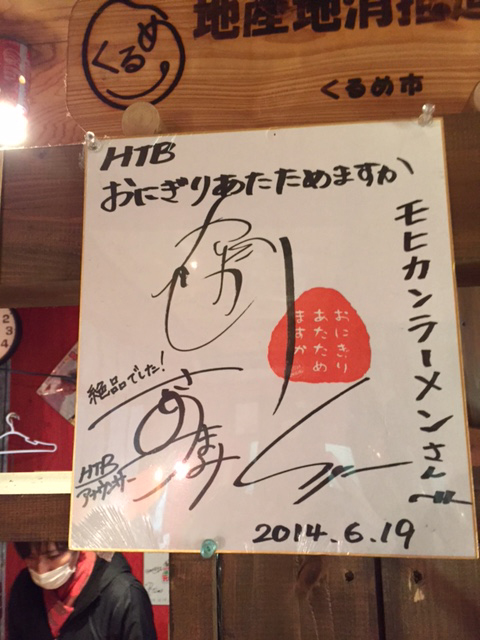 くるめ
地産地消推進
くるめ市
HTB
おにぎりあたためますか
モヒカンラーメンさんへ
おにぎり
あたため
ますか
絶品でした!
HTB
アナウンサー
2014.6.19